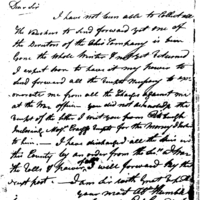 Dear Sir
I have not been able to Collect all
the Vouchers to send forward yet one of
the Directors of the Ohio Company is been
Gone the whole Winter & not yet Returned
I expect soon to have it in my Power to
send forward all the
me from all the Charges against me
at the War office you did not acknowledge the
Receipt of the letter I sent you from Pittsburgh
Inclosing Majr. Craigs Receipt for the Money paid
to him. I have discharged all the
this County by an order from the
the Rolls & I will forward by the
next post. I am Sir with Great Respect
your most Obt Humble